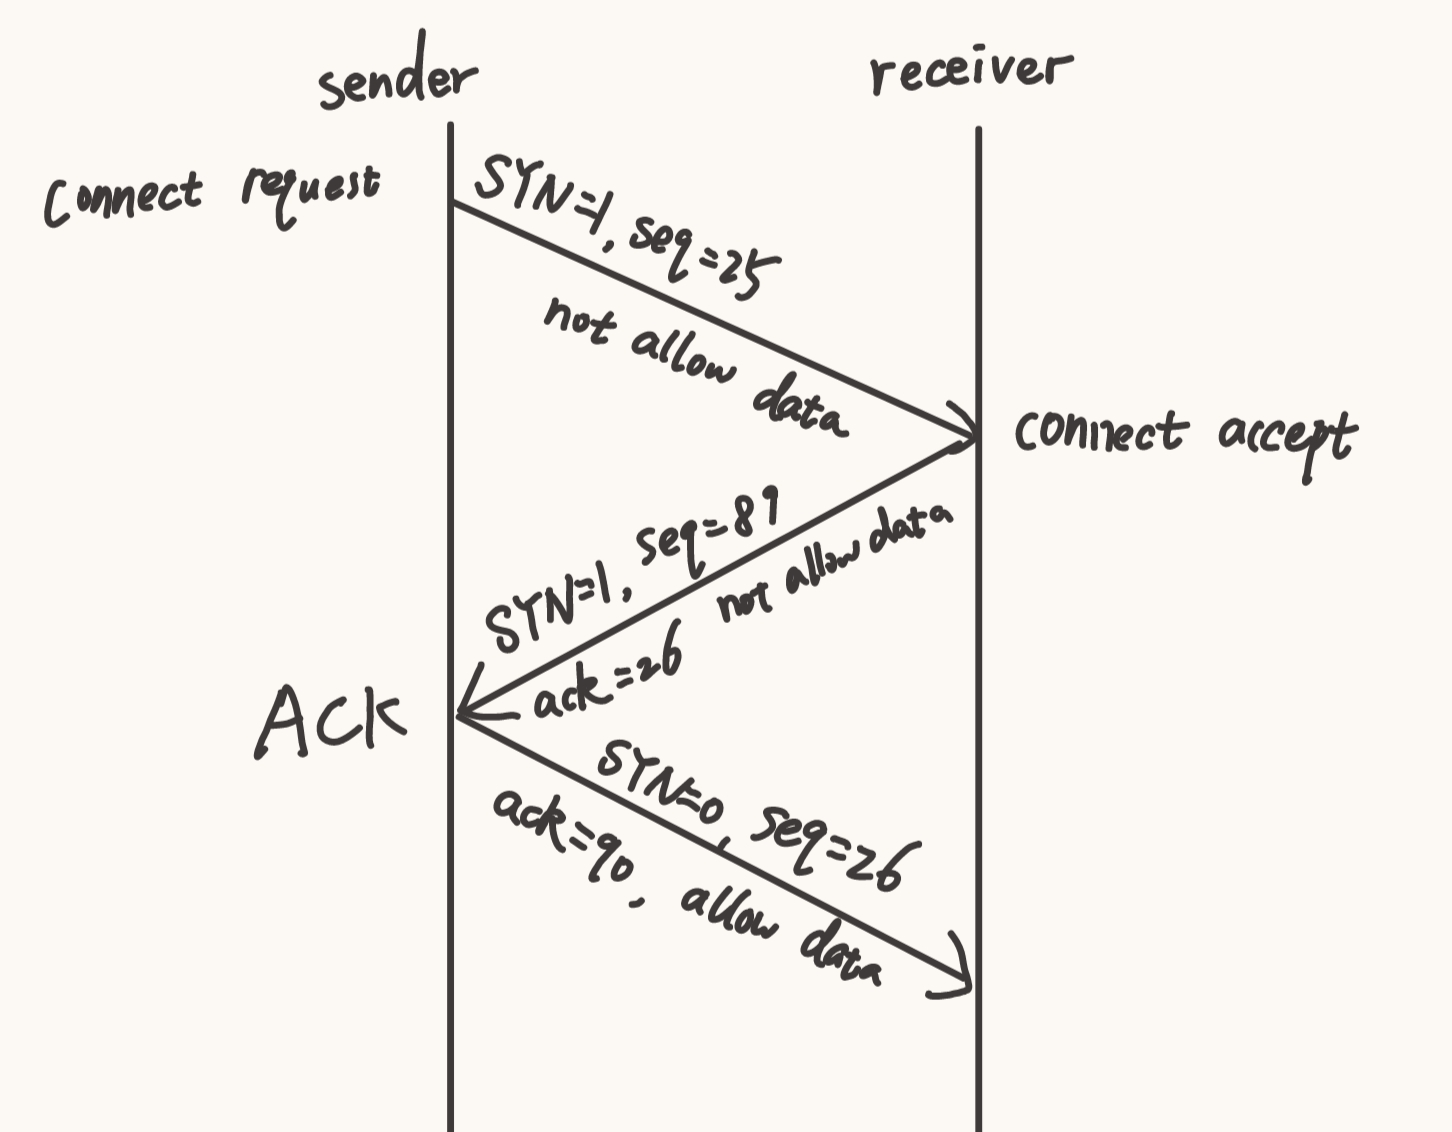 sender
receiver
connect request
SYN=1, seq=25
not allow data
connect accept
SYN=1, seq=89
not allow data
ack=26
ACK
SYN=0, seq=26
ack=90, allow data